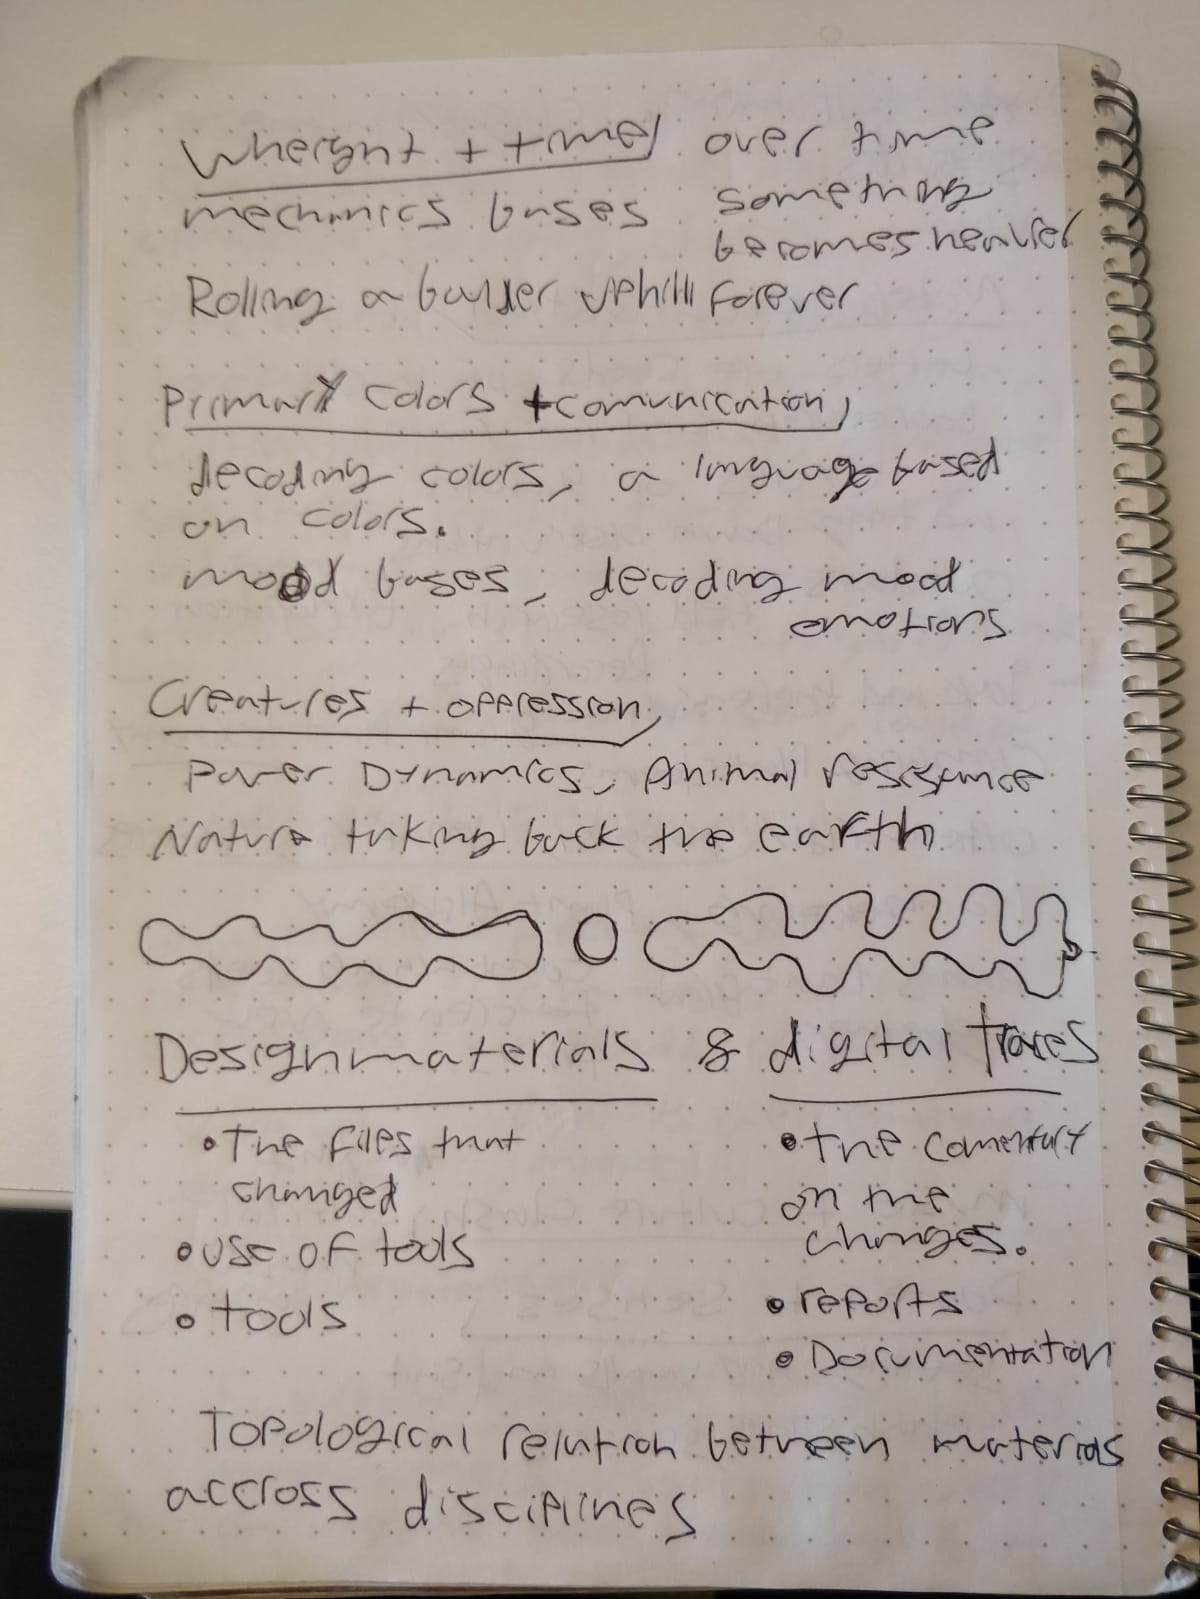 Wheignt + time/ over time
mechanics bases something
becomes heavier
Rolling a boulder uphill forever
Primary colors + comunication,
decoding colors, a language based
on colors.
mood bases, decoding mood
emotions
Creatures + oppression,
Power Dynamics, Animal resistance
Nature taking back the earth
Design materials & digital traces
• The files that
changed
• use of tools
• tools
• the comentary
on the
changes.
• reports
• Documentation
Topological relation between materials
accross disciplines